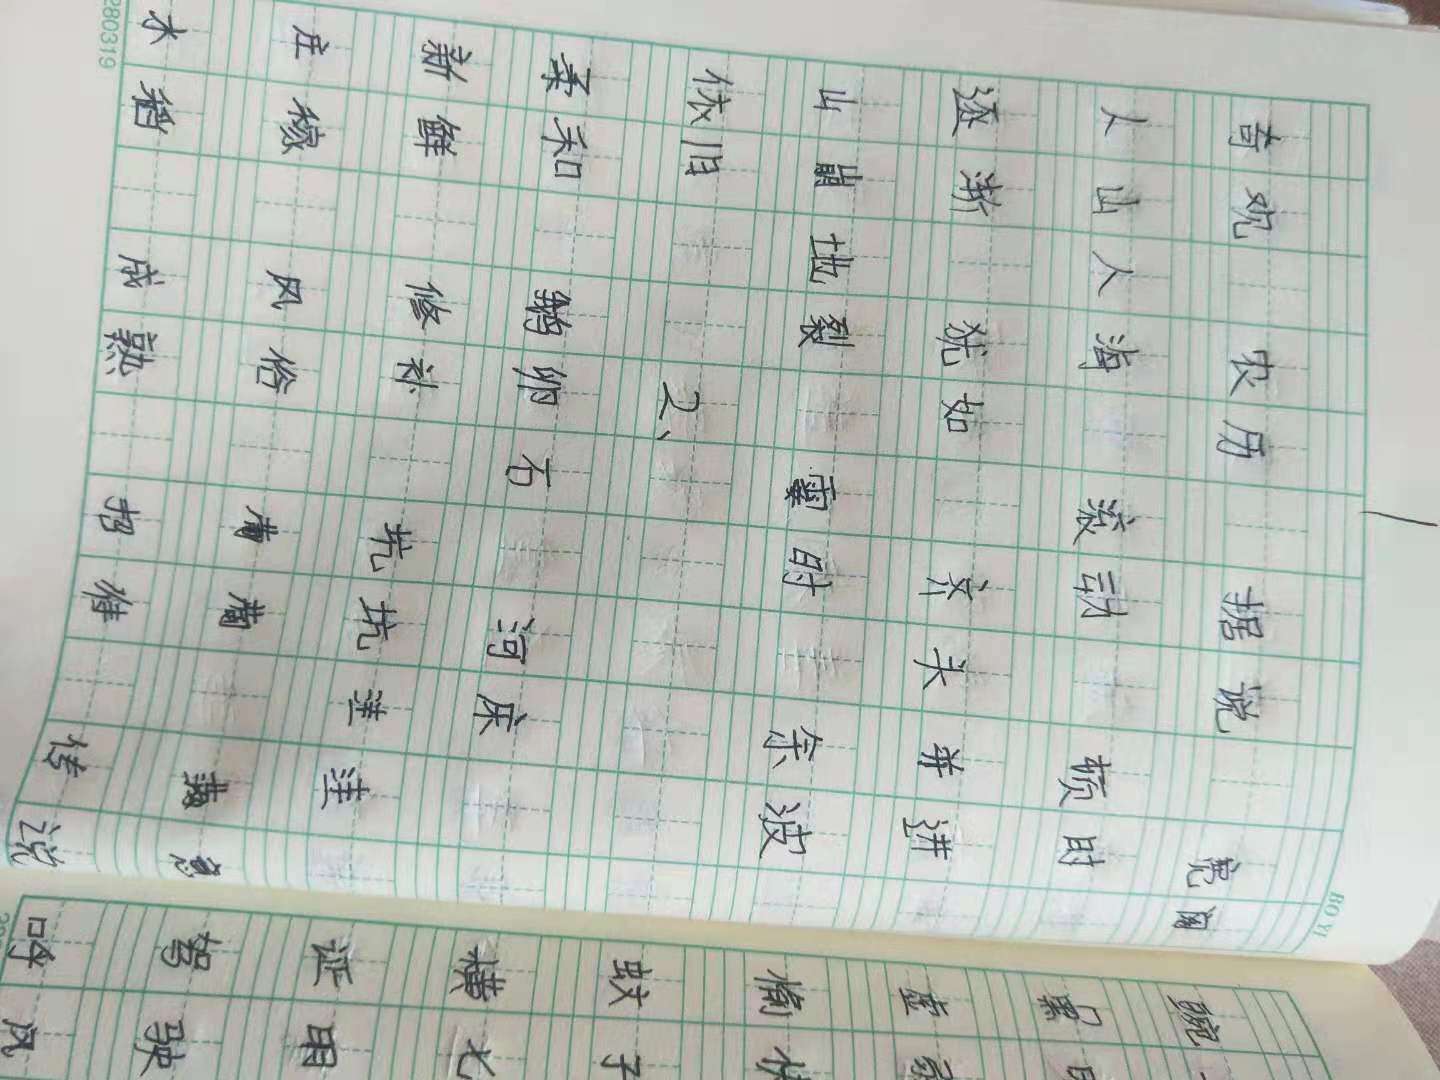 奇观 农历 据说 宽阔
人山人海 滚动 顿时
逐渐 犹如 齐头并进
山崩地裂 霎时 余波
依旧
2、
柔和 鹅卵石 河床
新鲜 修补 坑坑洼洼
庄稼 风俗 满意
水稻 成熟 传说
BO YI
280319
豌
愉快
蚊子
横七
证明
驾驶
呼风